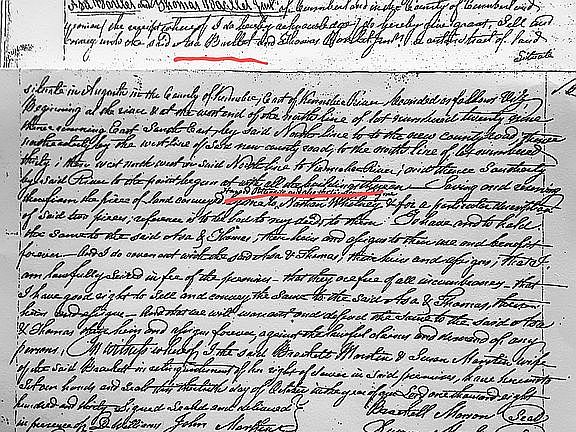 Asa Boullet & Thomas Boullet Junr of Cumberland in the County of Cumberland and
(the receipt whereof I do hereby acknowledge) do hereby give, grant, Sell and
convey unto the said Asa Bullet and Thomas Boullet Junr a certain tract of land
Situate
situate in Augusta in the County of Kennebec, East of Kennebec River bounded as follows Viz
Beginning at the river & at the west end of the north line of lot numbered twenty nine
thence running East South East by said North line to the new county road, thence
northerly by the west line of said new county road, to the north line of lot numbered
thirty; thence west north west on said North line to Kennebec River; and thence Southerly
by said River to the point begun at with all the buildings thereon Saving and reserving
therefrom the piece of land conveyed by me to Nathan Whitney, & for a particular description
of said two pieces, reference is to be had to my deeds to them To have and to hold
the same to the said Asa & Thomas, their heirs and assigns to their use and benefit
forever And I do covenant with the said Asa & Thomas, their heirs and assigns, that I
am lawfully Seized in fee of the premises that they are free of all incumbrances that
I have good right to Sell and convey the same to the said Asa & Thomas, their
heirs and assigns And that we will warrant and defend the same to the said Asa
& Thomas their heirs and assigns forever, against the lawful claims and demand of any
persons, In witness whereof, I the said Brackett and Susan wife
of the said Brackett in relinquishment of her right of dower in said premises, have hereunto
set our hands and seals this thirtieth day of October in the year of our Lord one thousand eight
hundred and thirty Signed Sealed and delivered
in presence of D Williams John Brackett Seal